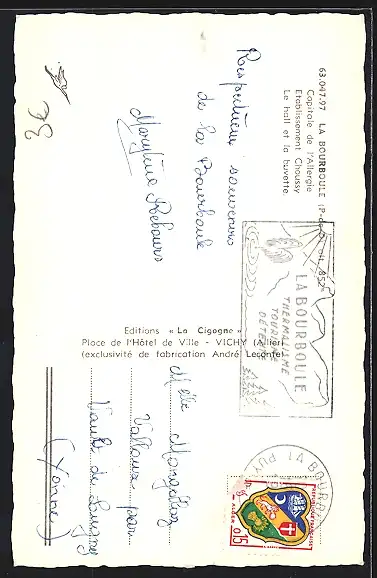 63.047.97 LA BOURBOULE (P-de-D) alt. 852
Capitale de l'Allergie
Etablissement Choussy
Le hall et la buvette.
Respectueux souvenirs
de la Bourboule
LA BOURBOULE
THERMALISME
TOURISME
DÉTENTE
Editions « La Cigogne »
Place de l'Hôtel de Ville - VICHY (Allier)
(exclusivité de fabrication André Leconte)
Melle
Vallaux par
Vault de Lugny
(Yonne)
LA BOURB
PUY
REPUBLIQUE FRANÇAISE
ALGER 0,15